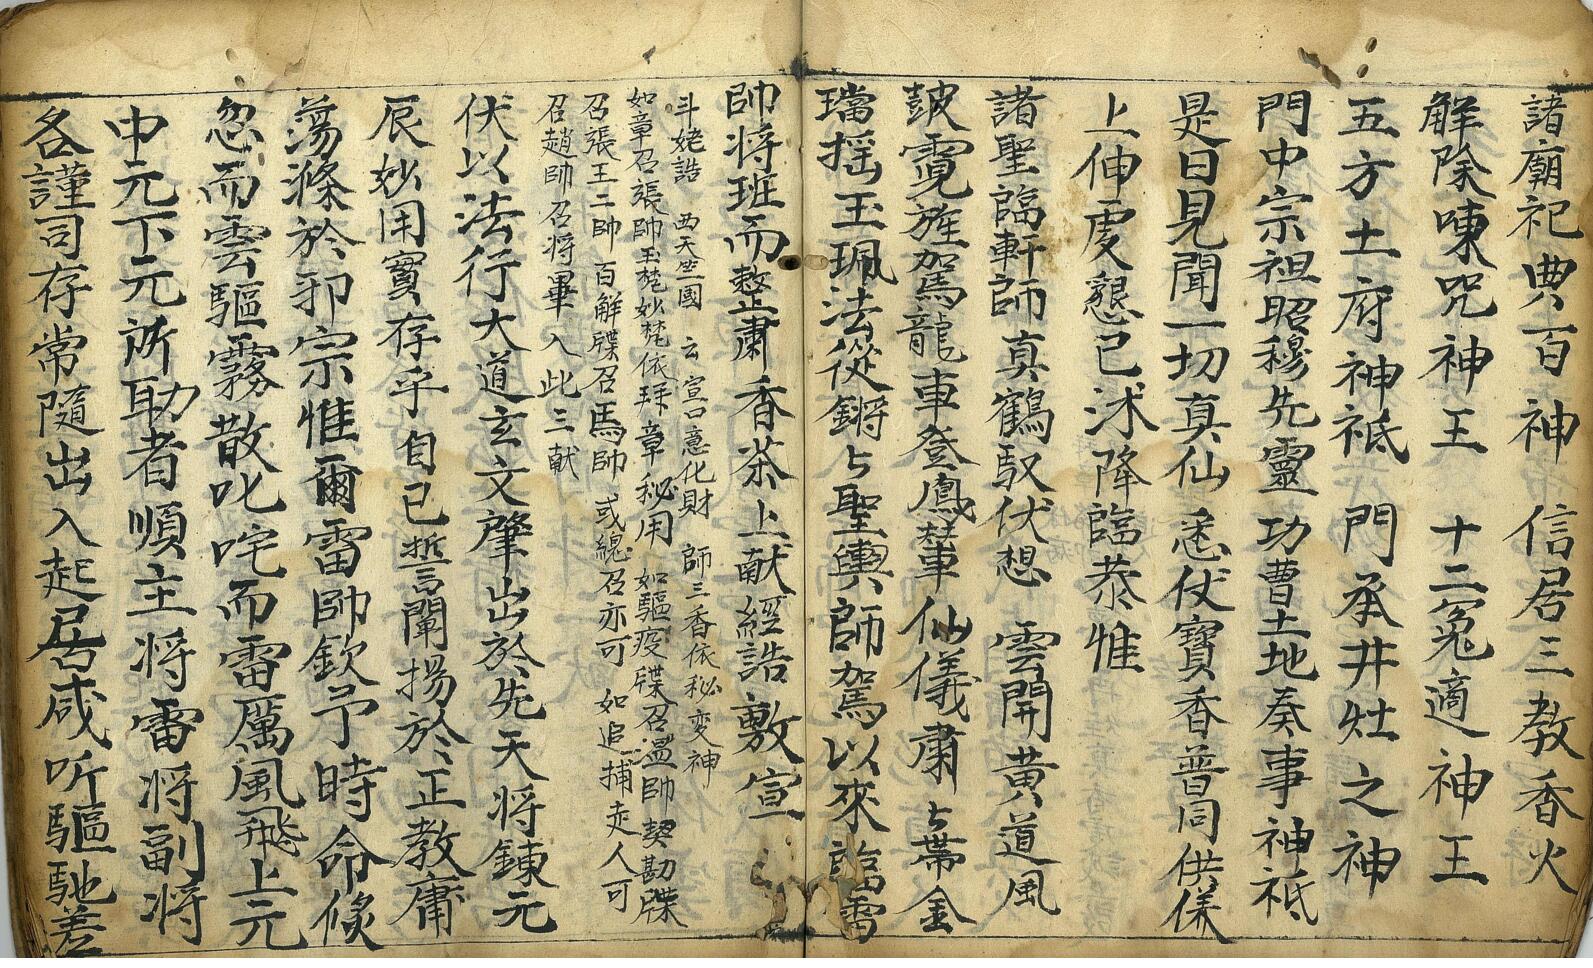 諸廟祀典百神 信居三教香火
解除呪咀神王 十二冤適神王
五方土府神祇 門承井灶之神
門中宗祖昭穆先靈 功曹土地奏事神祇
是日見聞一切真仙 悉仗寶香普同供儀
上伸虔懇已沭降臨恭惟
諸聖臨軒師真鶴馭伏想 雲開黄道風
皷霓旌駕龍車登鳳輦仙儀肅〻帶金
璫揺玉珮法從鏘〻聖輿師駕以來臨雷
帥將班而整肅香茶上献經誥敷宣
斗姥誥 西天竺國 云宣口意化財 師三香依秘变神
如章召張帥玉梵妙梵依珠章秘用 如驅疫牒召溫帥契勘牒
召張王二帥 百解牒召馬帥 或總召亦可 如追捕走人可
召趙帥召將畢入此三献
伏以法行大道玄文肇出於先天將鍊元
辰妙用實存乎自已哲言闡揚於正教庸
蕩滌於邪宗惟爾雷帥欽予時命倐
忽而雲驅霧散叱咤而雷厲風飛上元
中元下元所助者順主將雷將副將
各謹司存常隨出入起居咸听驅馳差